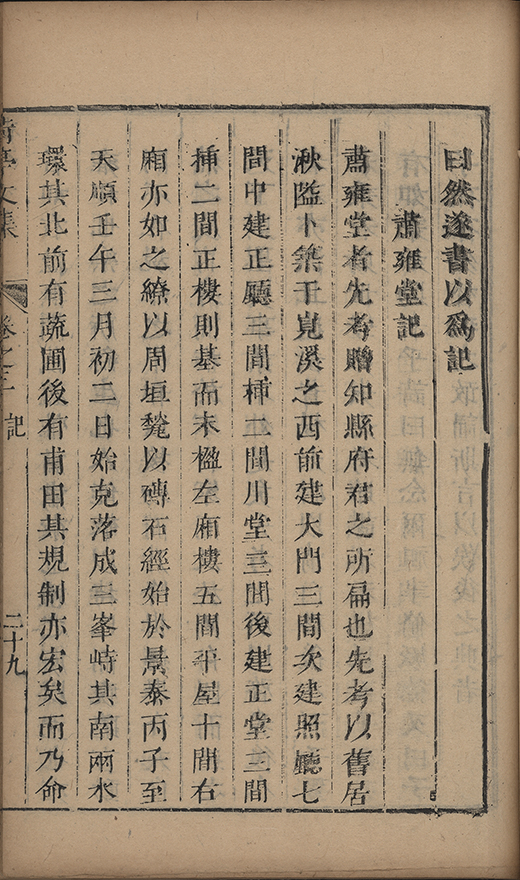 曰然遂書以為記
肅雍堂記
肅雍堂者先考贈知縣府君之所扁也先考以舊居
湫隘卜築于峴溪之西前建大門三間次建照廳七
間中建正廳三間插二間川堂三間後建正堂三間
插二間正樓則基而未楹左廂樓五間平屋十間右
廂亦如之繚以周垣甃以磚石經始於景泰丙子至
天順壬午三月初二日始克落成三峯峙其南兩水
環其北前有蔬圃後有甫田其規制亦宏矣而乃命
文集
卷之二
記
二十九